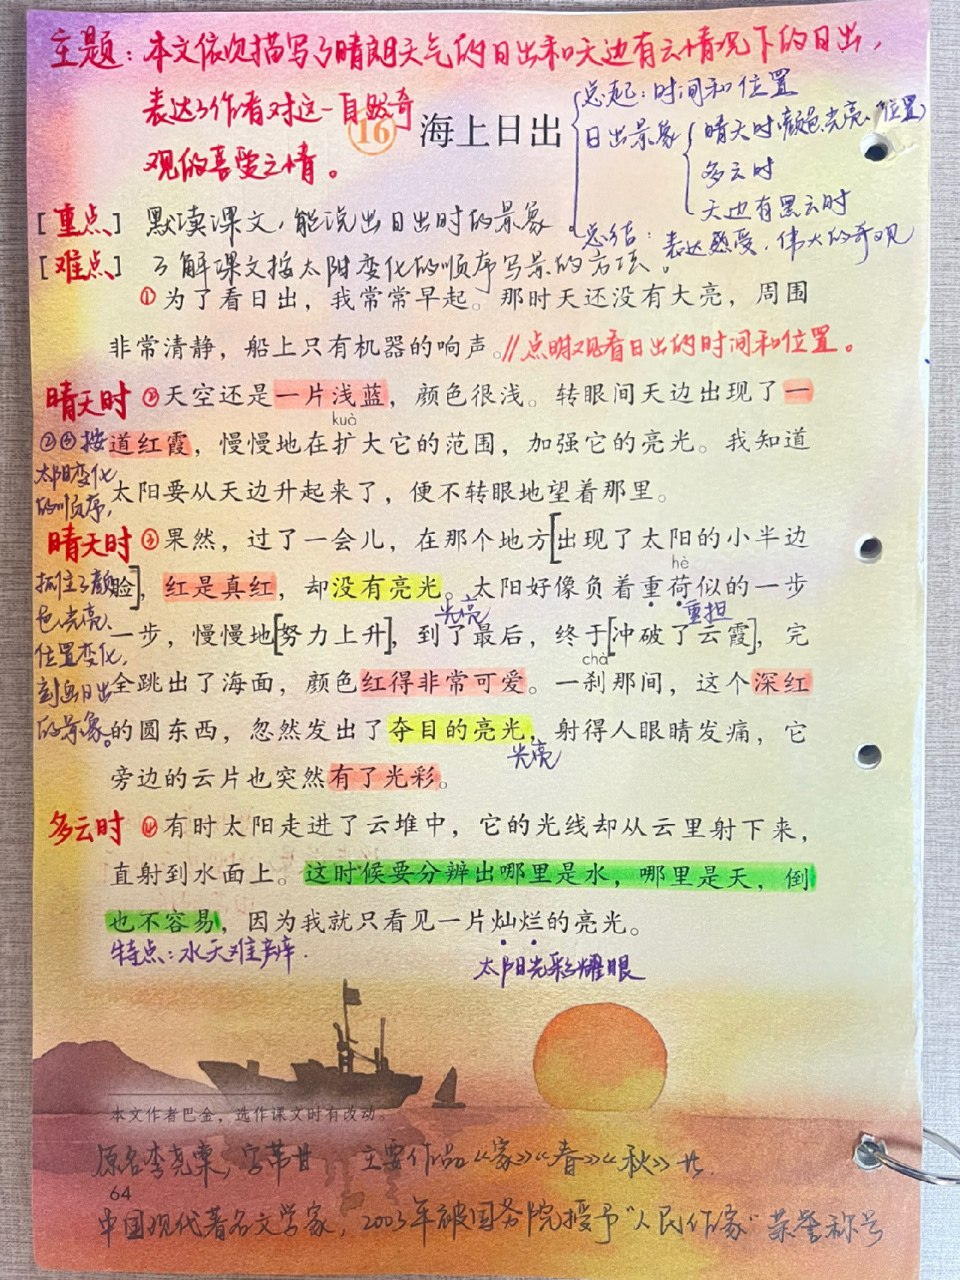 主题：本文依次描写了晴朗天气的日出和天边有云情况下的日出，
表达了作者对这一自然奇
观的喜爱之情。
16 海上日出
总起：时间和位置
日出景象
晴天时（颜色、光亮、位置）
多云时
天边有黑云时
总结：表达热爱，伟大的奇观
[重点] 默读课文，能说出日出时的景象
[难点] 了解课文按太阳变化的顺序写景的方法。
①为了看日出，我常常早起。那时天还没有大亮，周围
非常清静，船上只有机器的响声。//点明观看日出的时间和位置。
晴天时 ②天空还是一片浅蓝，颜色很浅。转眼间天边出现了一
kuò
道红霞，慢慢地在扩大它的范围，加强它的亮光。我知道
太阳要从天边升起来了，便不转眼地望着那里。
②③按
太阳变化
的顺序，
晴天时 ③果然，过了一会儿，在那个地方[出现了太阳的小半边
hè
脸]，红是真红，却没有亮光。太阳好像负着重荷似的一步
光亮
重担
一步，慢慢地[努力上升]，到了最后，终于[冲破了云霞]，完
chà
全跳出了海面，颜色红得非常可爱。一刹那间，这个深红
的圆东西，忽然发出了夺目的亮光，射得人眼睛发痛，它
光亮
旁边的云片也突然有了光彩。
抓住了颜
色、光亮、
位置变化，
刻画日出
的景象。
多云时 ④有时太阳走进了云堆中，它的光线却从云里射下来，
直射到水面上。这时候要分辨出哪里是水，哪里是天，倒
也不容易，因为我就只看见一片灿烂的亮光。
特点：水天难辨.
太阳光彩耀眼
本文作者巴金，选作课文时有改动。
原名李尧棠，字芾甘 主要作品《家》《春》《秋》共
64
中国现代著名文学家，2003年被国务院授予“人民作家”荣誉称号